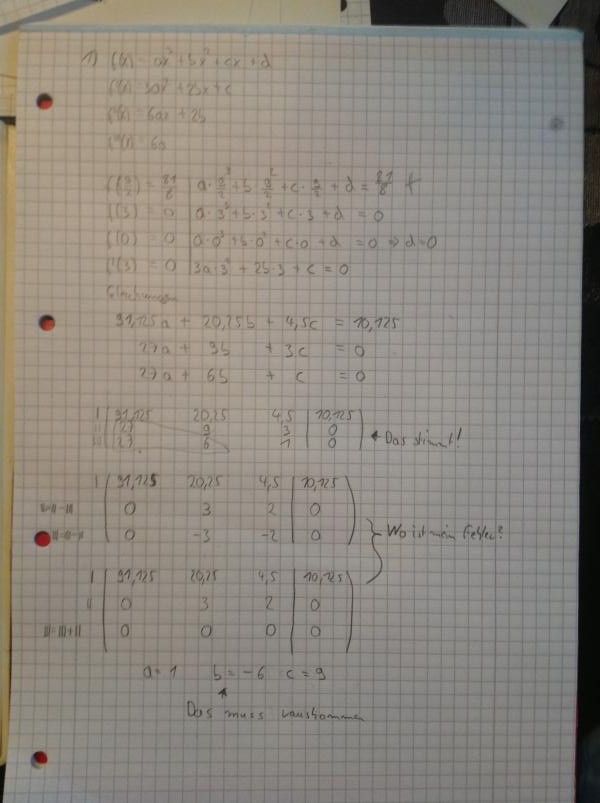 1) f(x) = ax³ + bx² + cx + d
f'(x) = 3ax² + 2bx + c
f''(x) = 6ax + 2b
f'''(x) = 6a
f(9/2) = 81/8 | a·9/2³ + b·9/2² + c·9/2 + d = 81/8
f(3) = 0 | a·3³ + b·3² + c·3 + d = 0
f(0) = 0 | a·0³ + b·0² + c·0 + d = 0 ⇒ d=0
f'(3) = 0 | 3a·3² + 2b·3 + c = 0
Gleichungen
91,125a + 20,25b + 4,5c = 10,125
27a + 9b + 3c = 0
27a + 6b + c = 0
I | 91,125 20,25 4,5 | 10,125
II | 27 9 3 | 0
III | 27 6 1 | 0
← Das stimmt!
I | 91,125 20,25 4,5 | 10,125
II=II-III | 0 3 2 | 0
III=III-II | 0 -3 -2 | 0
Wo ist mein Fehler?
I | 91,125 20,25 4,5 | 10,125
II | 0 3 2 | 0
III=III+II | 0 0 0 | 0
a=1 b=-6 c=9
Das muss rauskommen